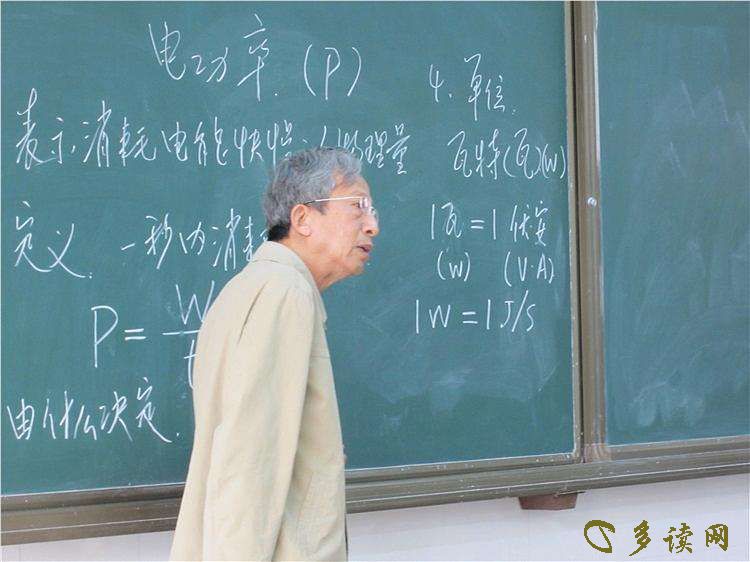 电功率.(P)
表示消耗电能快慢 物理量
定义. 一秒内消耗
P=W
由什么决定.
4.单位.
瓦特(瓦)(W)
1瓦=1伏安
(W) (V·A)
1W=1J/s
多读网